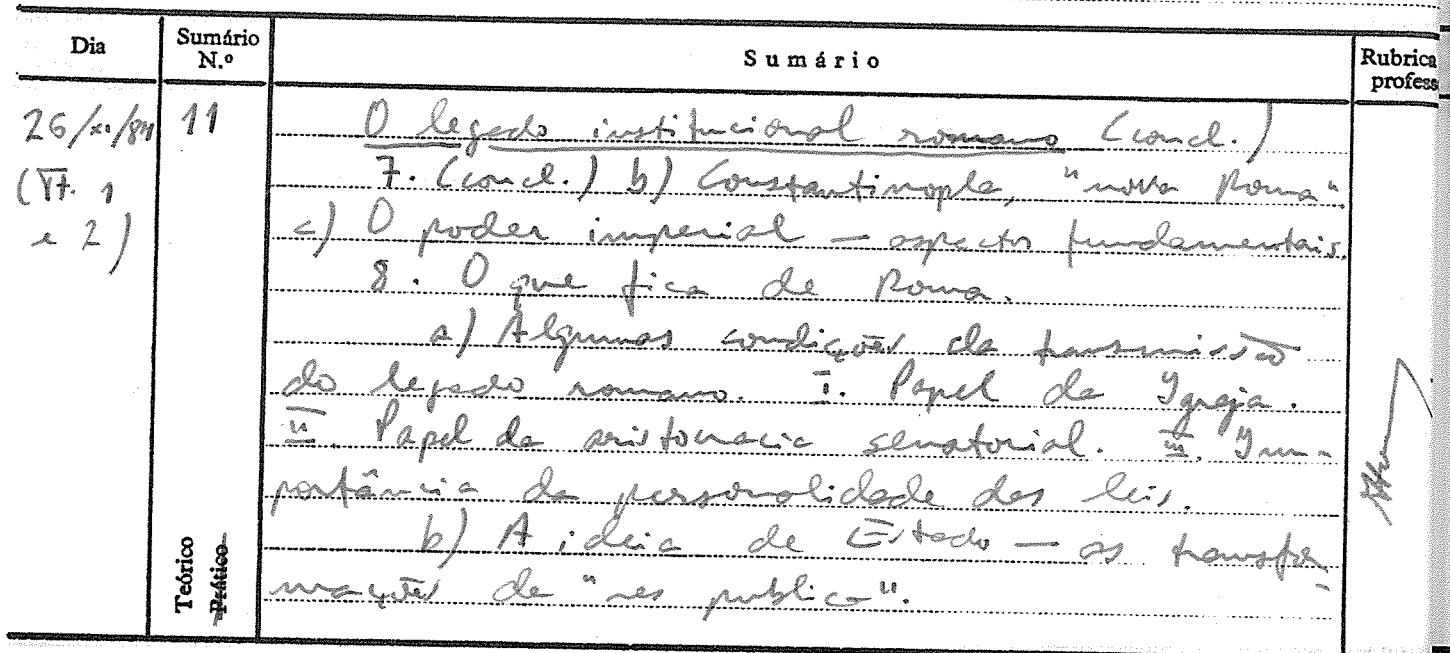 Dia
Sumário N.º
Sumário
Rubrica
profess
26/XI/84
(T. 1
e 2)
11
O legado institucional romano (concl.)
7. (concl.) b) Constantinopla, "nova Roma".
c) O poder imperial — aspectos fundamentais.
8. O que fica de Roma.
a) Algumas condições da transmissão
do legado romano. I. Papel da Igreja.
II. Papel da aristocracia senatorial. III. Im-
portância da personalidade das leis.
b) A ideia de Estado — as transfor-
mações da "res publica".
Teórico
Prático